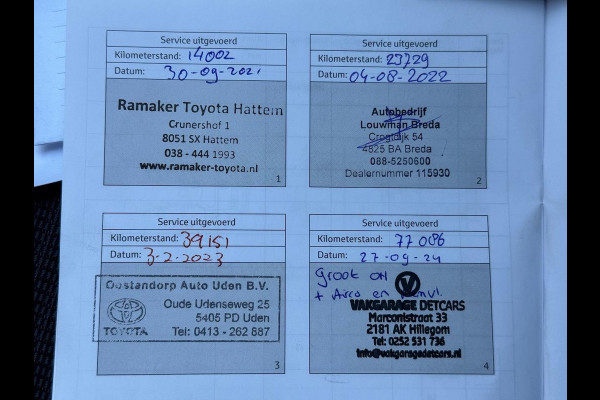 Service uitgevoerd
Kilometerstand: 14002
Datum: 30-09-2021
Ramaker Toyota Hattem
Crunershof 1
8051 SX Hattem
038 - 444 1993
www.ramaker-toyota.nl
1
Service uitgevoerd
Kilometerstand: 23729
Datum: 04-08-2022
Autobedrijf
Louwman Breda
Crogtdijk 54
4825 BA Breda
088-5260600
Dealernummer 115930
2
Service uitgevoerd
Kilometerstand: 39151
Datum: 3-2-2023
Oostendorp Auto Uden B.V.
Oude Udenseweg 25
5405 PD Uden
TOYOTA
Tel: 0413 - 262 887
3
Service uitgevoerd
Kilometerstand: 77086
Datum: 27-09-24
Groot OH
+ Airco en
VAKGARAGE DETCARS
Marconistraat 33
2181 AK Hillegom
Tel: 0252 531 736
info@vakgaragedetcars.nl
4